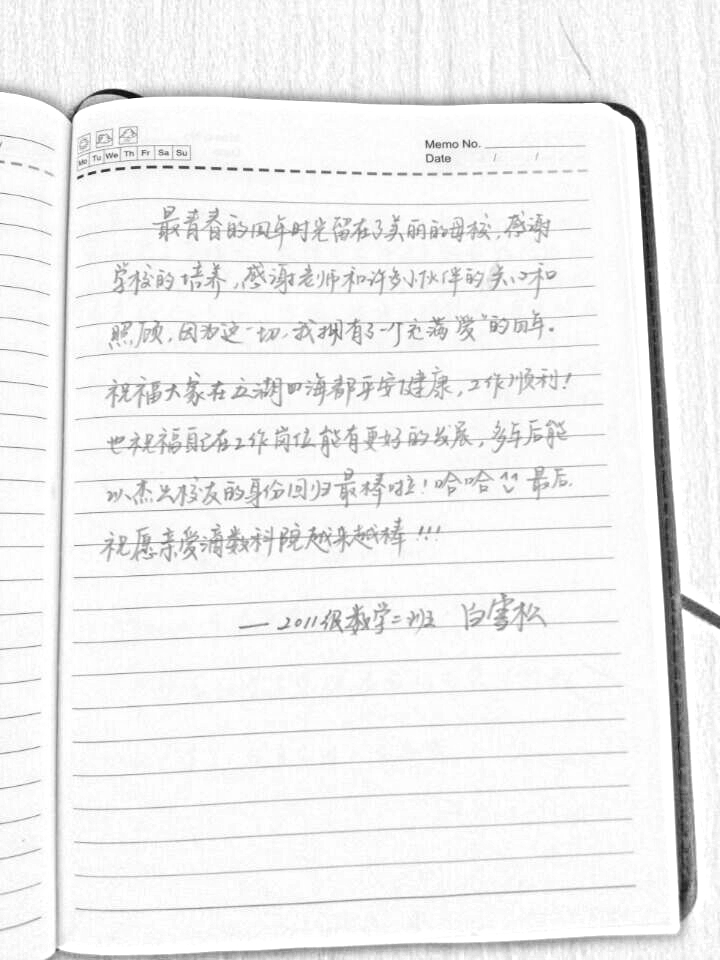 Memo No.
Mo Tu We Th Fr Sa Su
Date / /
最青春的四年时光留在了美丽的母校,感谢
学校的培养,感谢老师和许多小伙伴的关心和
照顾,因为这一切,我拥有了一个充满"爱"的四年。
祝福大家在五湖四海都平安健康,工作顺利!
也祝福自己在工作岗位能有更好的发展,多年后能
以杰出校友的身份回归最棒啦!哈哈 最后,
祝愿亲爱滴数科院越来越棒!!!
— 2011级数学二班 白雪松